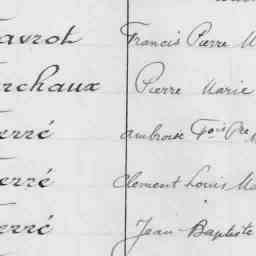 avrot Francis Pierre M
rchaux Pierre Marie
erré ambroise Fçois Pre
erré Clement Louis Ma
erré Jean-Baptiste